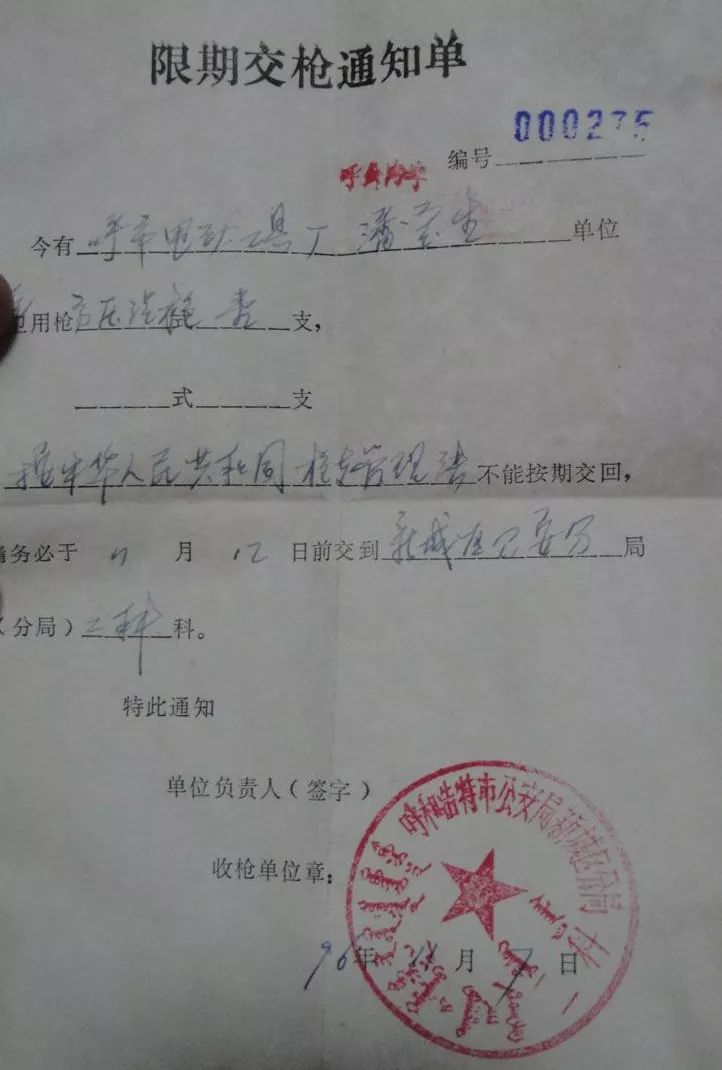 限期交枪通知单
000275
编号
今有呼市电动工具厂潘 生单位
用枪 高压 枪 壹支，
式 支
据中华人民共和国枪支管理法不能按期交回，
请务必于 11 月 12 日前交到新城区公安分局
（分局）二科科。
特此通知
单位负责人（签字）
收枪单位章：
呼和浩特市公安局新城区分局
96年 11 月 7 日